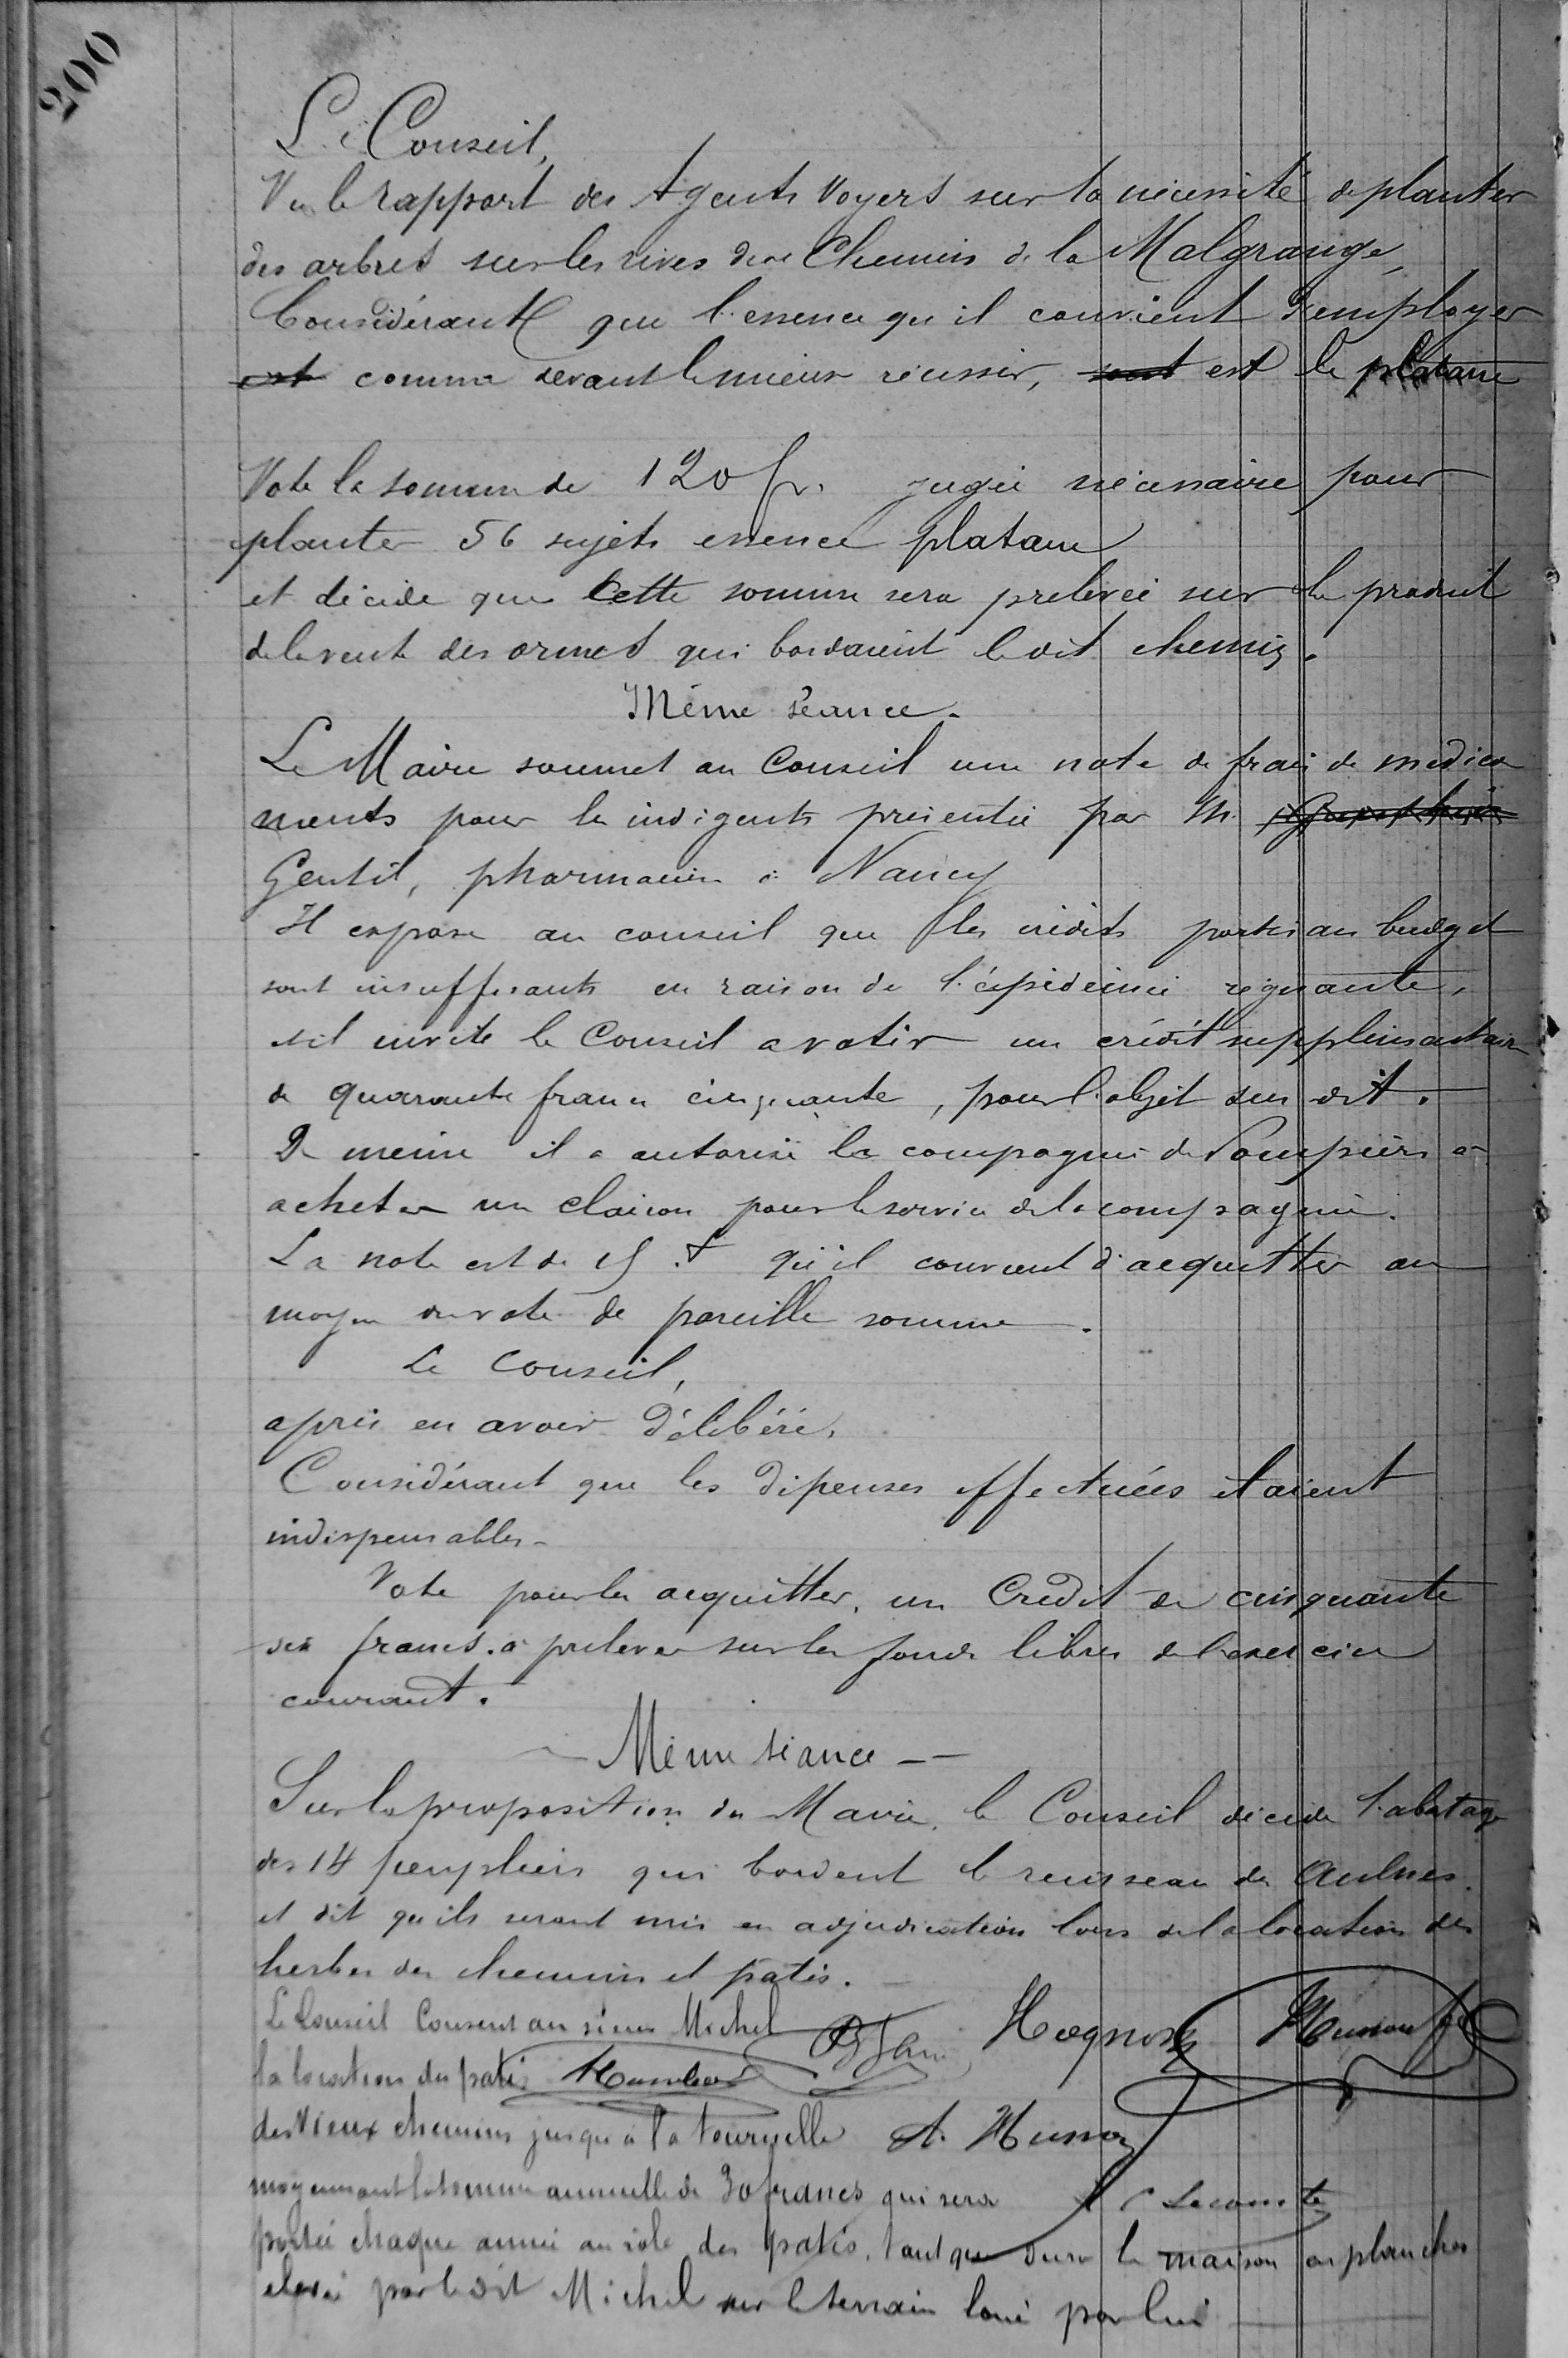 200
Le Conseil,
Vu le rapport des Agents Voyers sur la nécessité de planter
des arbres sur les rives du Chemin de la Malgrange,
Considérant que l'essence qu'il convient d'employer
est comme devant le mieux réussir, sont est le platane
Vote la somme de 120 fr. jugée nécessaire pour
planter 56 sujets essence platane
et décide que cette somme sera prélevée sur le produit
de la vente des ormes qui bordaient le dit chemin.
Même séance.
Le Maire soumet au Conseil une note de frais de médica
ments pour les indigents présentée par M.
Gentil, pharmacien à Nancy
Il expose au conseil que les crédits portés au budget
sont insuffisants en raison de l'épidémie régnante,
et il invite le Conseil a voter un crédit supplémentaire
de quarante francs cinquante, pour l'objet sus dit.
De même il a autorisé la compagnie de Pompiers a
acheter un clairon pour le service de la compagnie.
La note est de 15 f qu'il convient d'acquitter au
moyen du vote de pareille somme.
Le Conseil,
après en avoir délibéré,
Considérant que les dépenses effectuées étaient
indispensables -
Vote pour les acquitter, un Crédit de cinquante
six francs. à prélever sur les fonds libres de l'exercice
courant.
Même séance
Sur la proposition du Maire, le Conseil décide l'abatage
des 14 peupliers qui bordent le ruisseau des Aulnes.
et dit qu'ils seront mis en adjudication lors de la location des
herbes des chemins et patis.
Le Conseil Consent au sieur Michel Hognon Husson
la location du patis Humbert
des Vieux chemins jusqu'à la tournelle A. Husson
moyennant la somme annuelle de 30 francs qui sera Lecomte
portée chaque année au rôle des patis, tant que dure la maison en planches
élevée par le dit Michel sur le terrain loué par lui